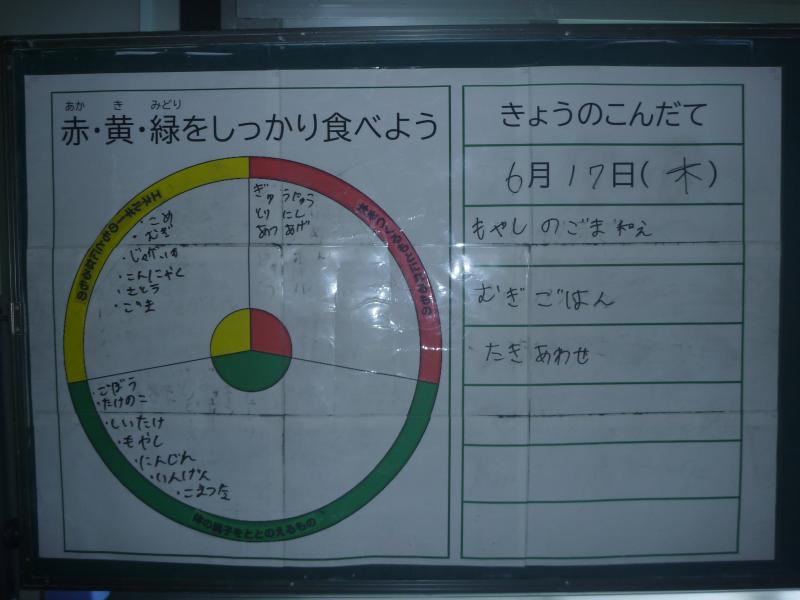 あか き みどり
赤・黄・緑をしっかり食べよう
エネルギーのもとになるもの
・こめ
・むぎ
・じゃがいも
・こんにゃく
・さとう
・ごま
ぎゅうにゅう
とり にし
あつあげ
体をつくるもとになるもの
・ごぼう
・たけのこ
・しいたけ
・もやし
・にんじん
・いんげん
・こまつな
体の調子をととのえるもの
きょうのこんだて
6月17日(木)
もやしのごま和え
むぎごはん
たきあわせ